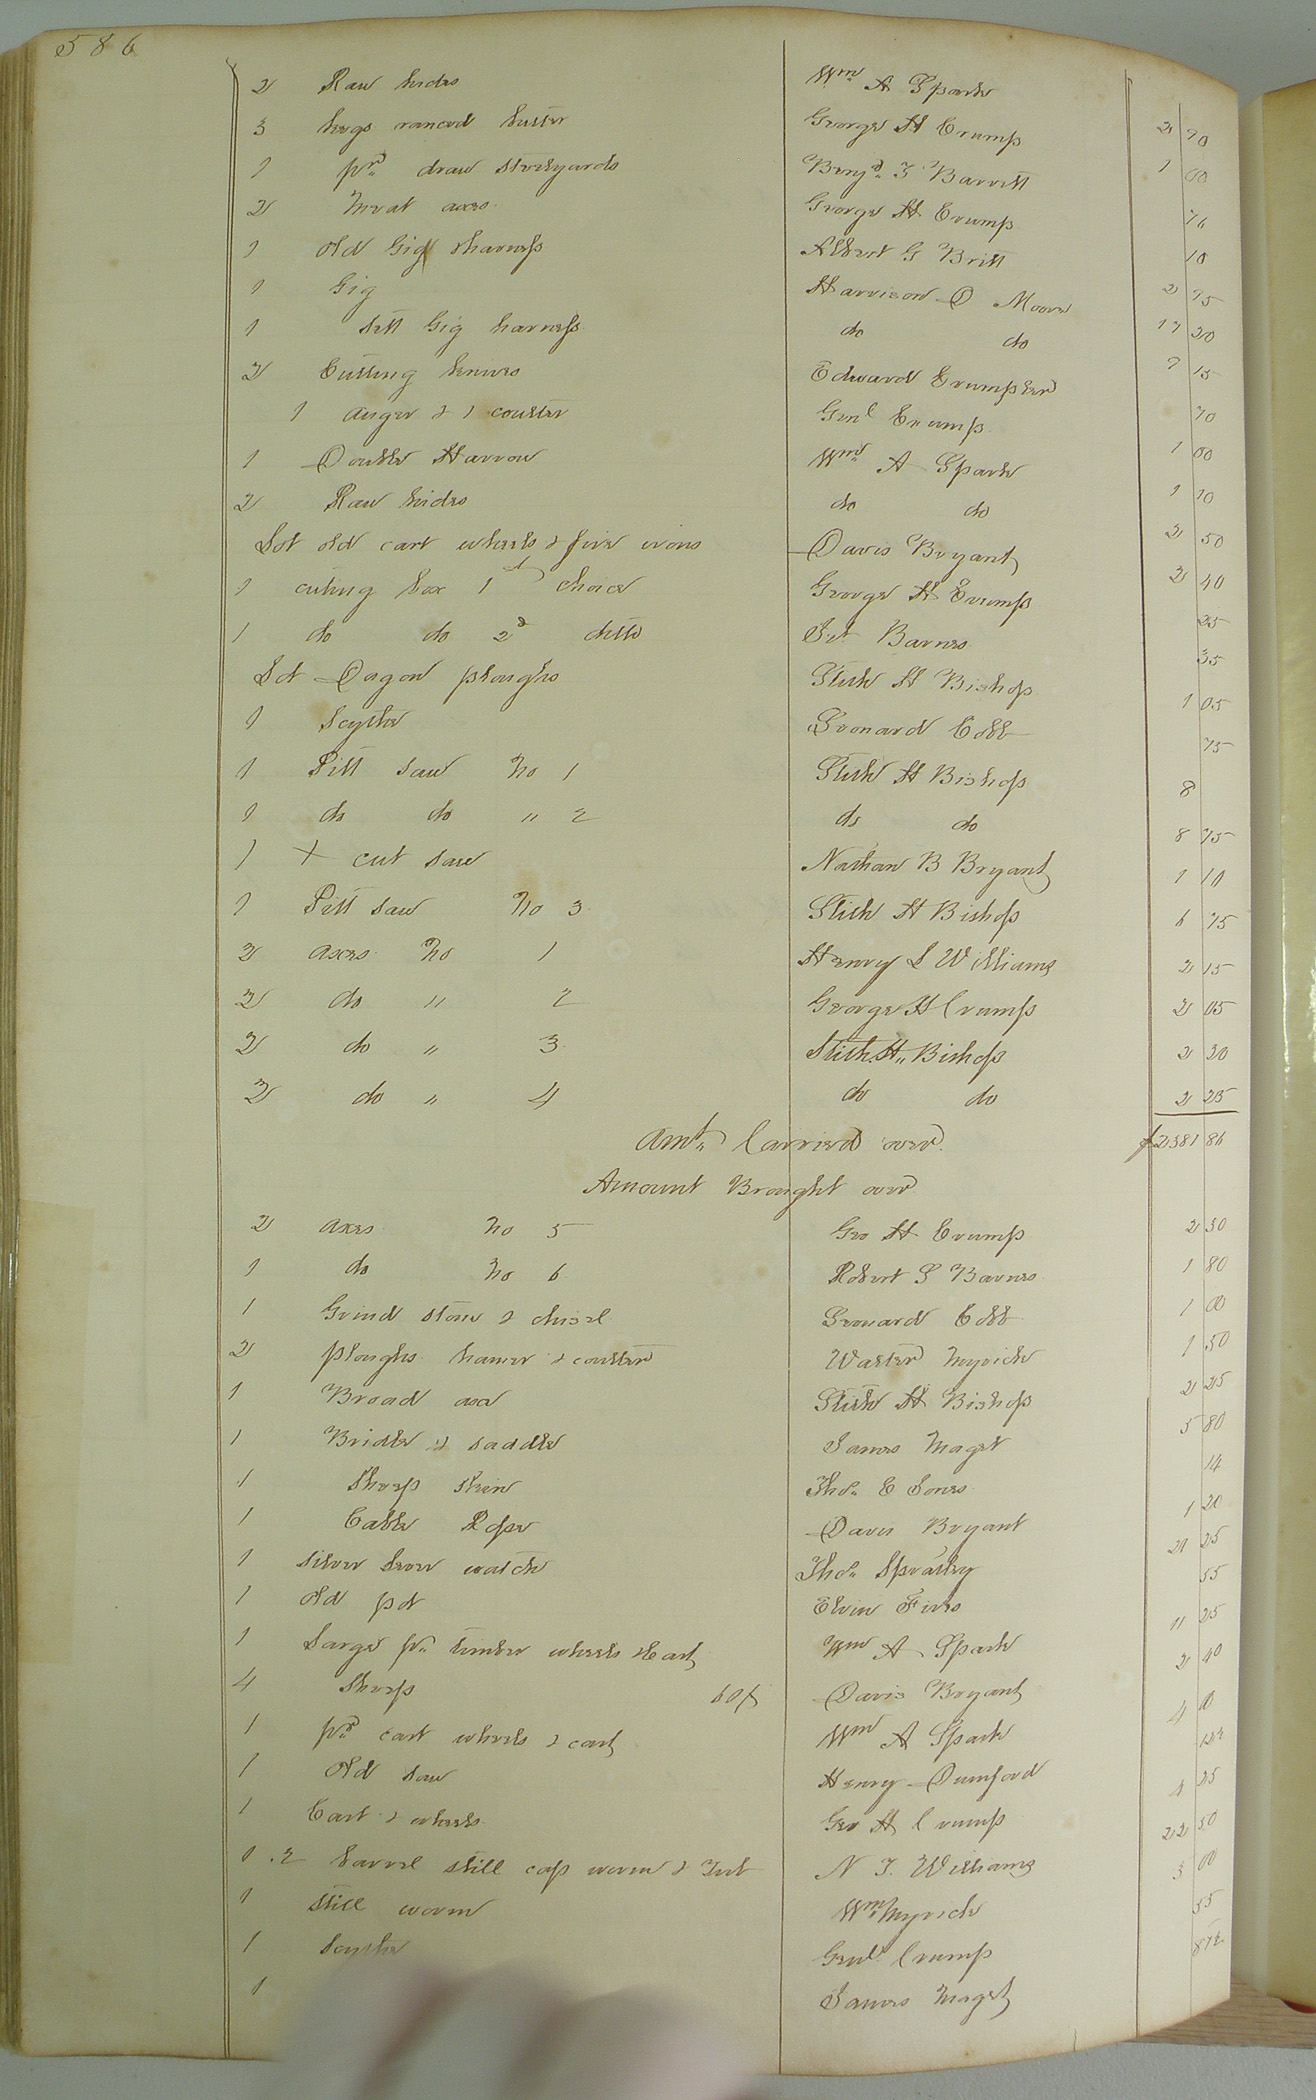 586
2 Raw hides Wm A Spark
3 kegs rancid butter George H Crump 2 70
1 pr draw steelyards Benjn T Barrett 1 00
2 meat axes George H Crump 76
1 old Gig & harness Albert G Britt 10
1 Gig Harrison D Moore 2 75
1 sett Gig harness do do 17 20
2 Cutting knives Edward Crumpler 7 15
1 auger & 1 coulter Genl Crump 70
1 Double Harrow Wm A Spark 1 00
2 Raw hides do do 1 10
Lot old cart wheels & fire irons Davis Bryant 2 50
1 cuting box 1st choice George H Crump 2 40
1 do do 2d ditto Barnes 25
Lot Dagon ploughs Stith H Bishop 35
1 Scythe Leonard Cobb 1 05
1 Pitt saw No 1 Stith H Bishop 75
1 do do " 2 do do 8
1 X cut saw Nathan B Bryant 8 75
1 Pitt saw No 3 Stith H Bishop 1 10
2 axes No 1 Henry L Williams 6 75
2 do " 2 George H Crump 2 15
2 do " 3 Stith H. Bishop 2 05
2 do " 4 do do 2 20
2 25
Amt Carried over $2381 86
Amount Brought over
2 axes No 5 Geo H Crump 2 50
1 do No 6 Robert S Barnes 1 80
1 Grind stone & chisel Leonard Cobb 1 00
2 ploughs hamer & coulter Walter Myrick 1 50
1 Broad axe Stith H Bishop 2 25
1 Bridle & saddle James Maget 5 80
1 Sheep skin Thos E Jones 14
1 Cable Rope Davis Bryant 1 20
1 silver lever watch Thos Spratley 21 25
1 old pot Elvin Fires 55
1 Large pr timber wheels & Cart Wm A Spark 11 25
4 Sheep 60/ Davis Bryant 2 40
1 pr cart wheels & cart Wm A Spark 4 00
1 Old saw Henry Dumford 12½
1 Cart & wheels Geo H Crump 4 25
1 .2 barrel still cap worm & Tub N T. Williams 22 50
1 still worm Wm Myrick 3 00
1 Scythe Genl Crump 55
1 James Maget 87½